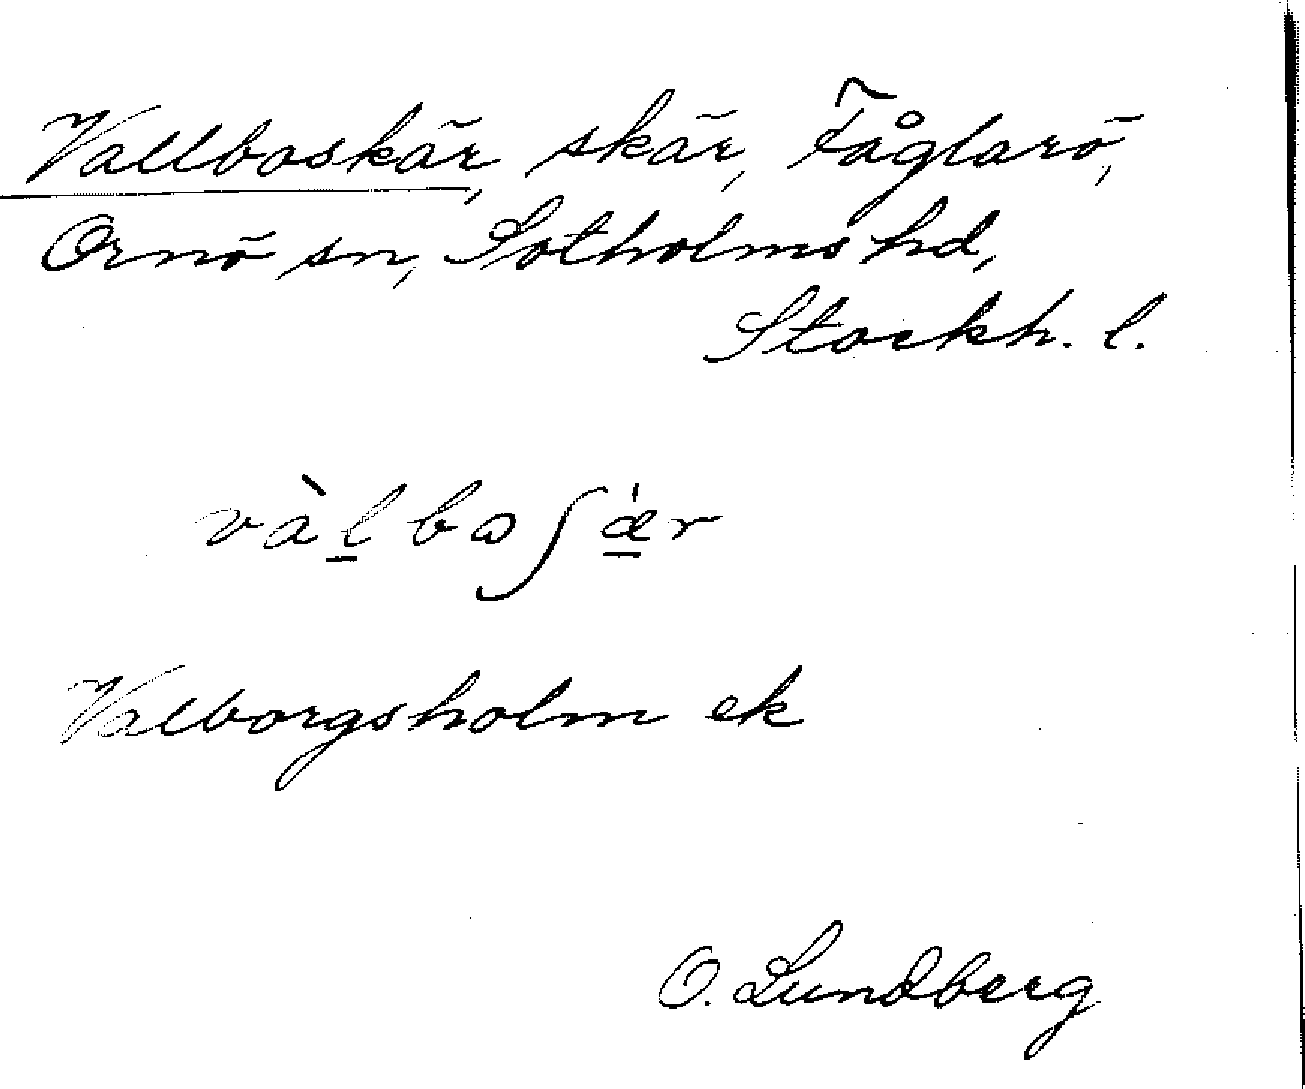 Vallboskär, skär, Fåglarö,
Ornö sn, Sotholms hd,
Stockh. l.
vàl̲boʃæ̲̍r
Valborgsholm ek
O. Lundberg